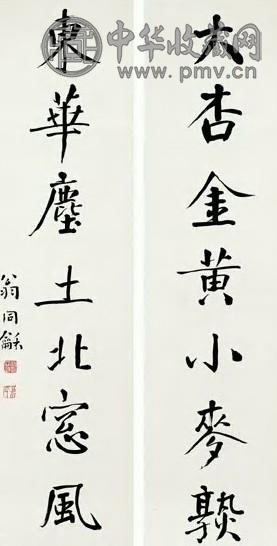 大杏金黄小麥𤍨
東華塵土北窓風
翁同龢
中华收藏网
www.pmv.cn